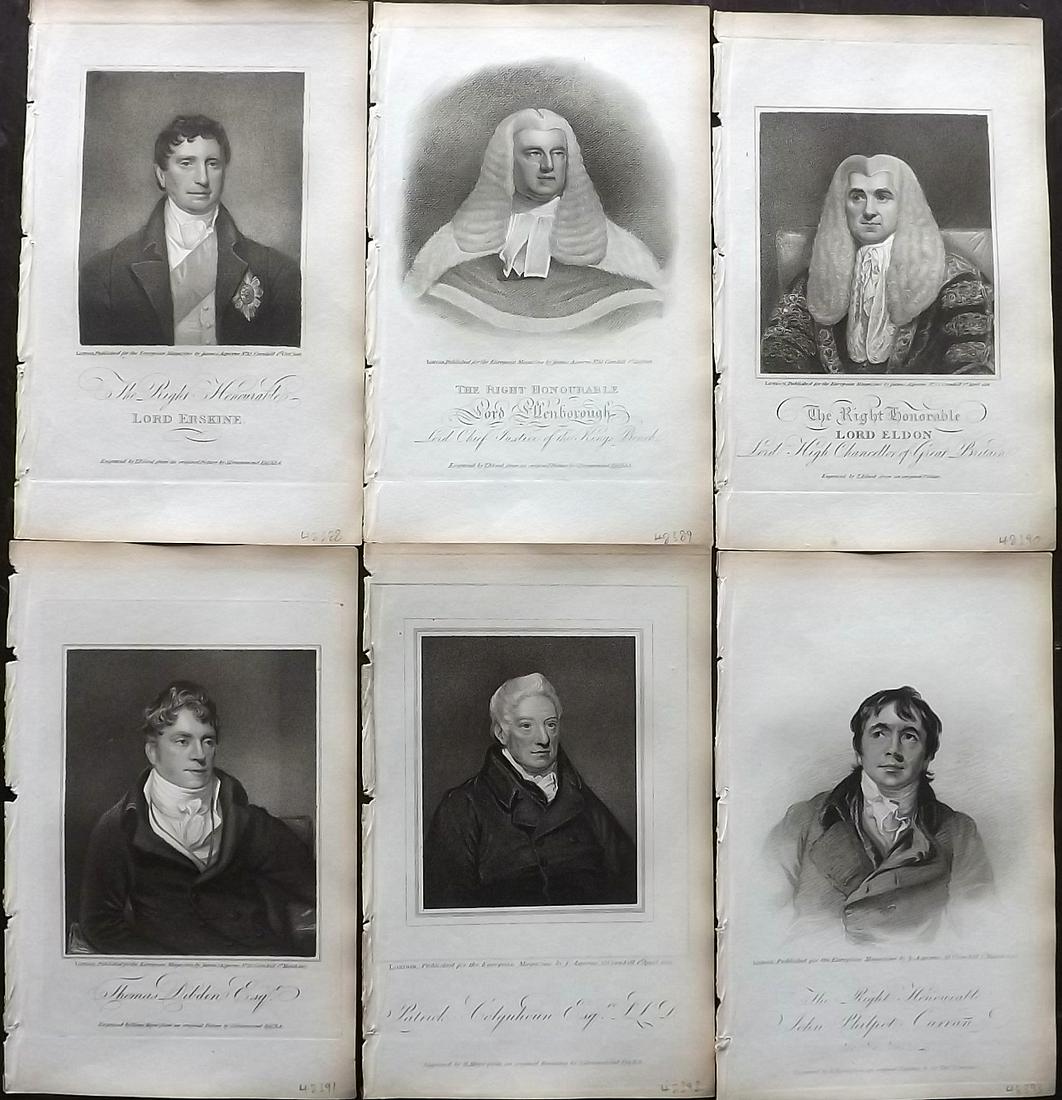 LONDON, Published for the European Magazine by James Asperne No. 32 Cornhill 1st Oct.
The Right Honourable
LORD ERSKINE
Engraved by T. Blood from an original Picture by S. Drummond Esq. A.R.A.
42588
LONDON, Published for the European Magazine by James Asperne No. 32 Cornhill
THE RIGHT HONOURABLE
Lord Ellenborough
Lord Chief Justice of the Kings Bench
Engraved by T. Blood from an original Picture by S. Drummond Esq. A.R.A.
42589
LONDON, Published for the European Magazine by James Asperne No. 32 Cornhill 1st April
The Right Honorable
LORD ELDON
Lord High Chancellor of Great Britain
Engraved by T. Blood from an original Picture
42590
LONDON, Published for the European Magazine by James Asperne No. 32 Cornhill 1st March
Thomas Dibden Esqr.
Engraved by from an original Picture by S. Drummond Esq. A.R.A.
42591
LONDON, Published for the European Magazine by J. Asperne, 32 Cornhill 1st April
Patrick Colquhoun Esqre. L.L.D.
Engraved by from an original by S. Drummond Esq. A.R.A.
42592
LONDON, Published for the European Magazine by J. Asperne, 32 Cornhill
The Right Honourable
John Philpot Curran
Engraved by